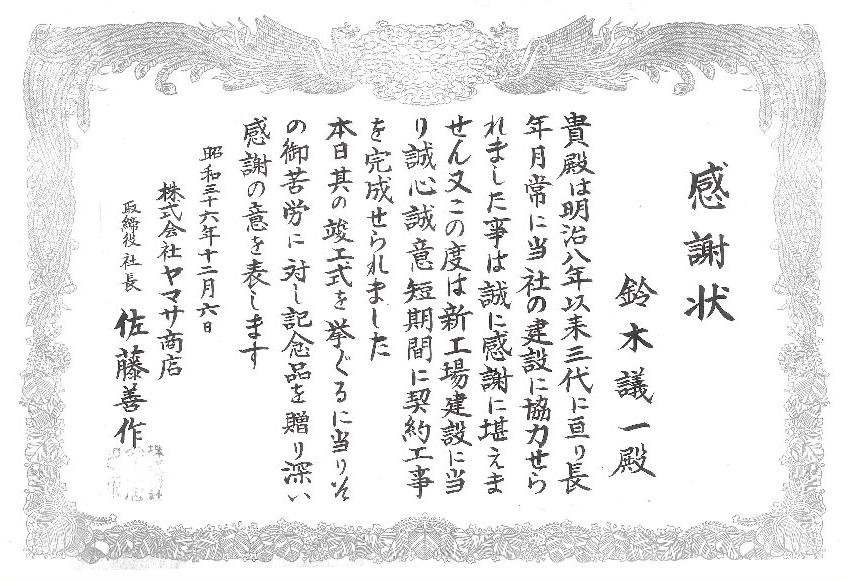 感謝状
鈴木議一殿
貴殿は明治八年以来三代に亘り長
年月常に当社の建設に協力せら
れました事は誠に感謝に堪えま
せん又この度は新工場建設に当
り誠心誠意短期間に契約工事
を完成せられました
本日其の竣工式を挙ぐるに当りそ
の御苦労に対し記念品を贈り深い
感謝の意を表します
昭和三十六年十二月六日
株式会社ヤマサ商店
取締役社長 佐藤善作